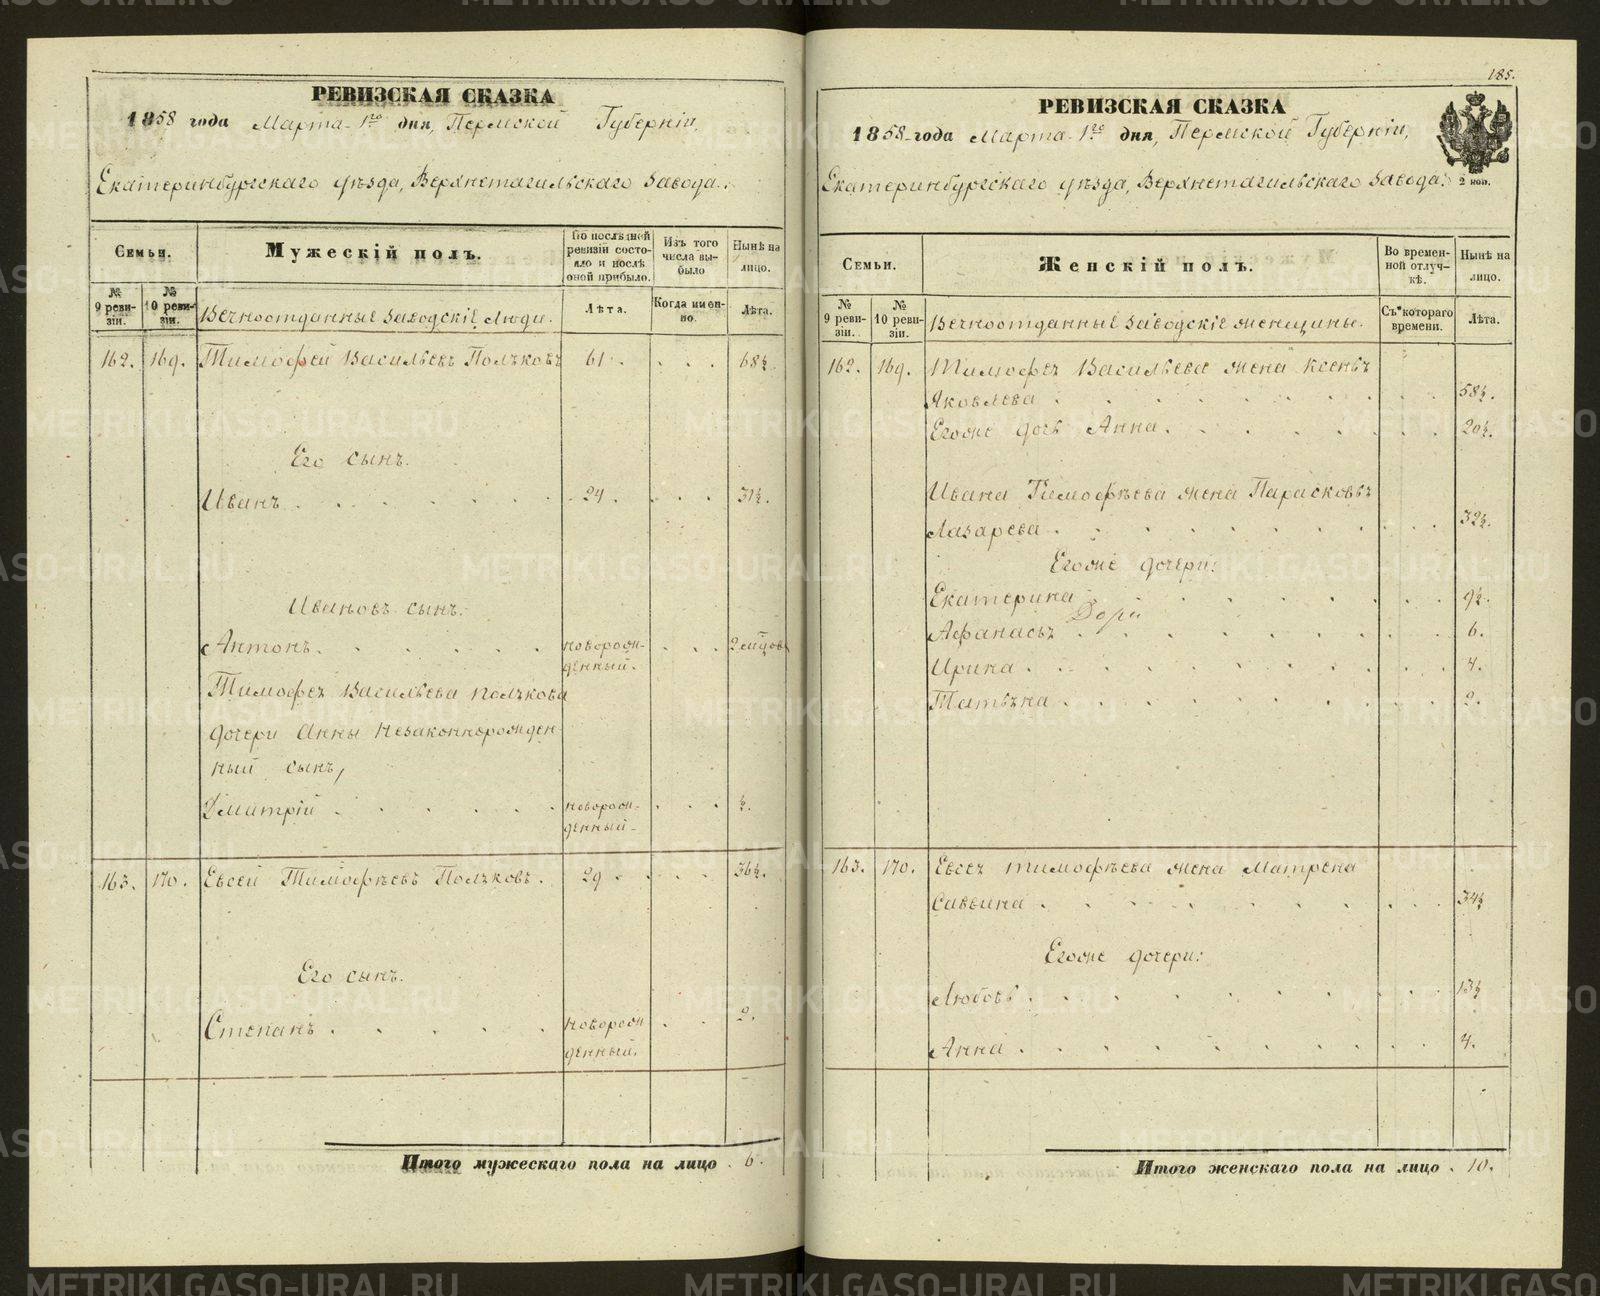 РЕВИЗСКАЯ СКАЗКА
1858 года Марта 1го дня, Пермской Губерніи,
Екатеринбургскаго уѣзда, Верхнетагильскаго Завода.
Семьи.
Мужескій полъ.
По послѣдней ревизіи состояло и послѣ оной прибыло.
Изъ того числа выбыло
Нынѣ на лицо.
№ 9 ревизіи.
№ 10 ревизіи.
Вечноотданные заводскіе люди.
Лѣта.
Когда именно.
Лѣта.
162. 169. Тимофей Васильевъ Полѣковъ 61. . . . 68½
Его сынъ.
Иванъ . . . . . . 24. . . . 31½.
Ивановъ сынъ.
Антонъ. . . . . . новорожденный. . . . 2 мѣцовъ
Тимофея Васильева Полѣкова
дочери Анны незаконнорожден
ный сынъ,
Дмитрій . . . . . новорожденный. . . . ½.
163. 170. Евсей Тимофѣевъ Полѣковъ. 29 . . . . 36½.
Его сынъ.
Степанъ . . . . . новорожденный. . . . 2.
Итого мужескаго пола на лицо . 6.
185.
РЕВИЗСКАЯ СКАЗКА
1858 года Марта 1го дня, Пермской Губерніи,
Екатеринбургскаго уѣзда, Верхнетагильскаго Завода.
2 коп.
Семьи.
Женскій полъ.
Во временной отлучкѣ.
Нынѣ на лицо.
№ 9 ревизіи.
№ 10 ревизіи.
Вечноотданные заводскіе женщины.
Съ котораго времени.
Лѣта.
162. 169. Тимофея Васильева жена Ксенья
Яковлева . . . . . . . . . 58½.
Егоже дочь Анна. . . . . . . . 20½.
Ивана Тимофѣева жена Парасковья
Лазарева . . . . . . . . . 32½.
Егоже дочери:
Екатерина . . . . . . . . 9½.
Дори
Афанасья . . . . . . . . 6.
Ирина . . . . . . . . . 4.
Татьяна . . . . . . . . 2.
163. 170. Евсея Тимофѣева жена Матрена
Саввина . . . . . . . . . 34½
Егоже дочери:
Любовь . . . . . . . . . 13½
Анна . . . . . . . . . 4.
Итого женскаго пола на лицо . 10.
METRIKI.GASO-URAL.RU